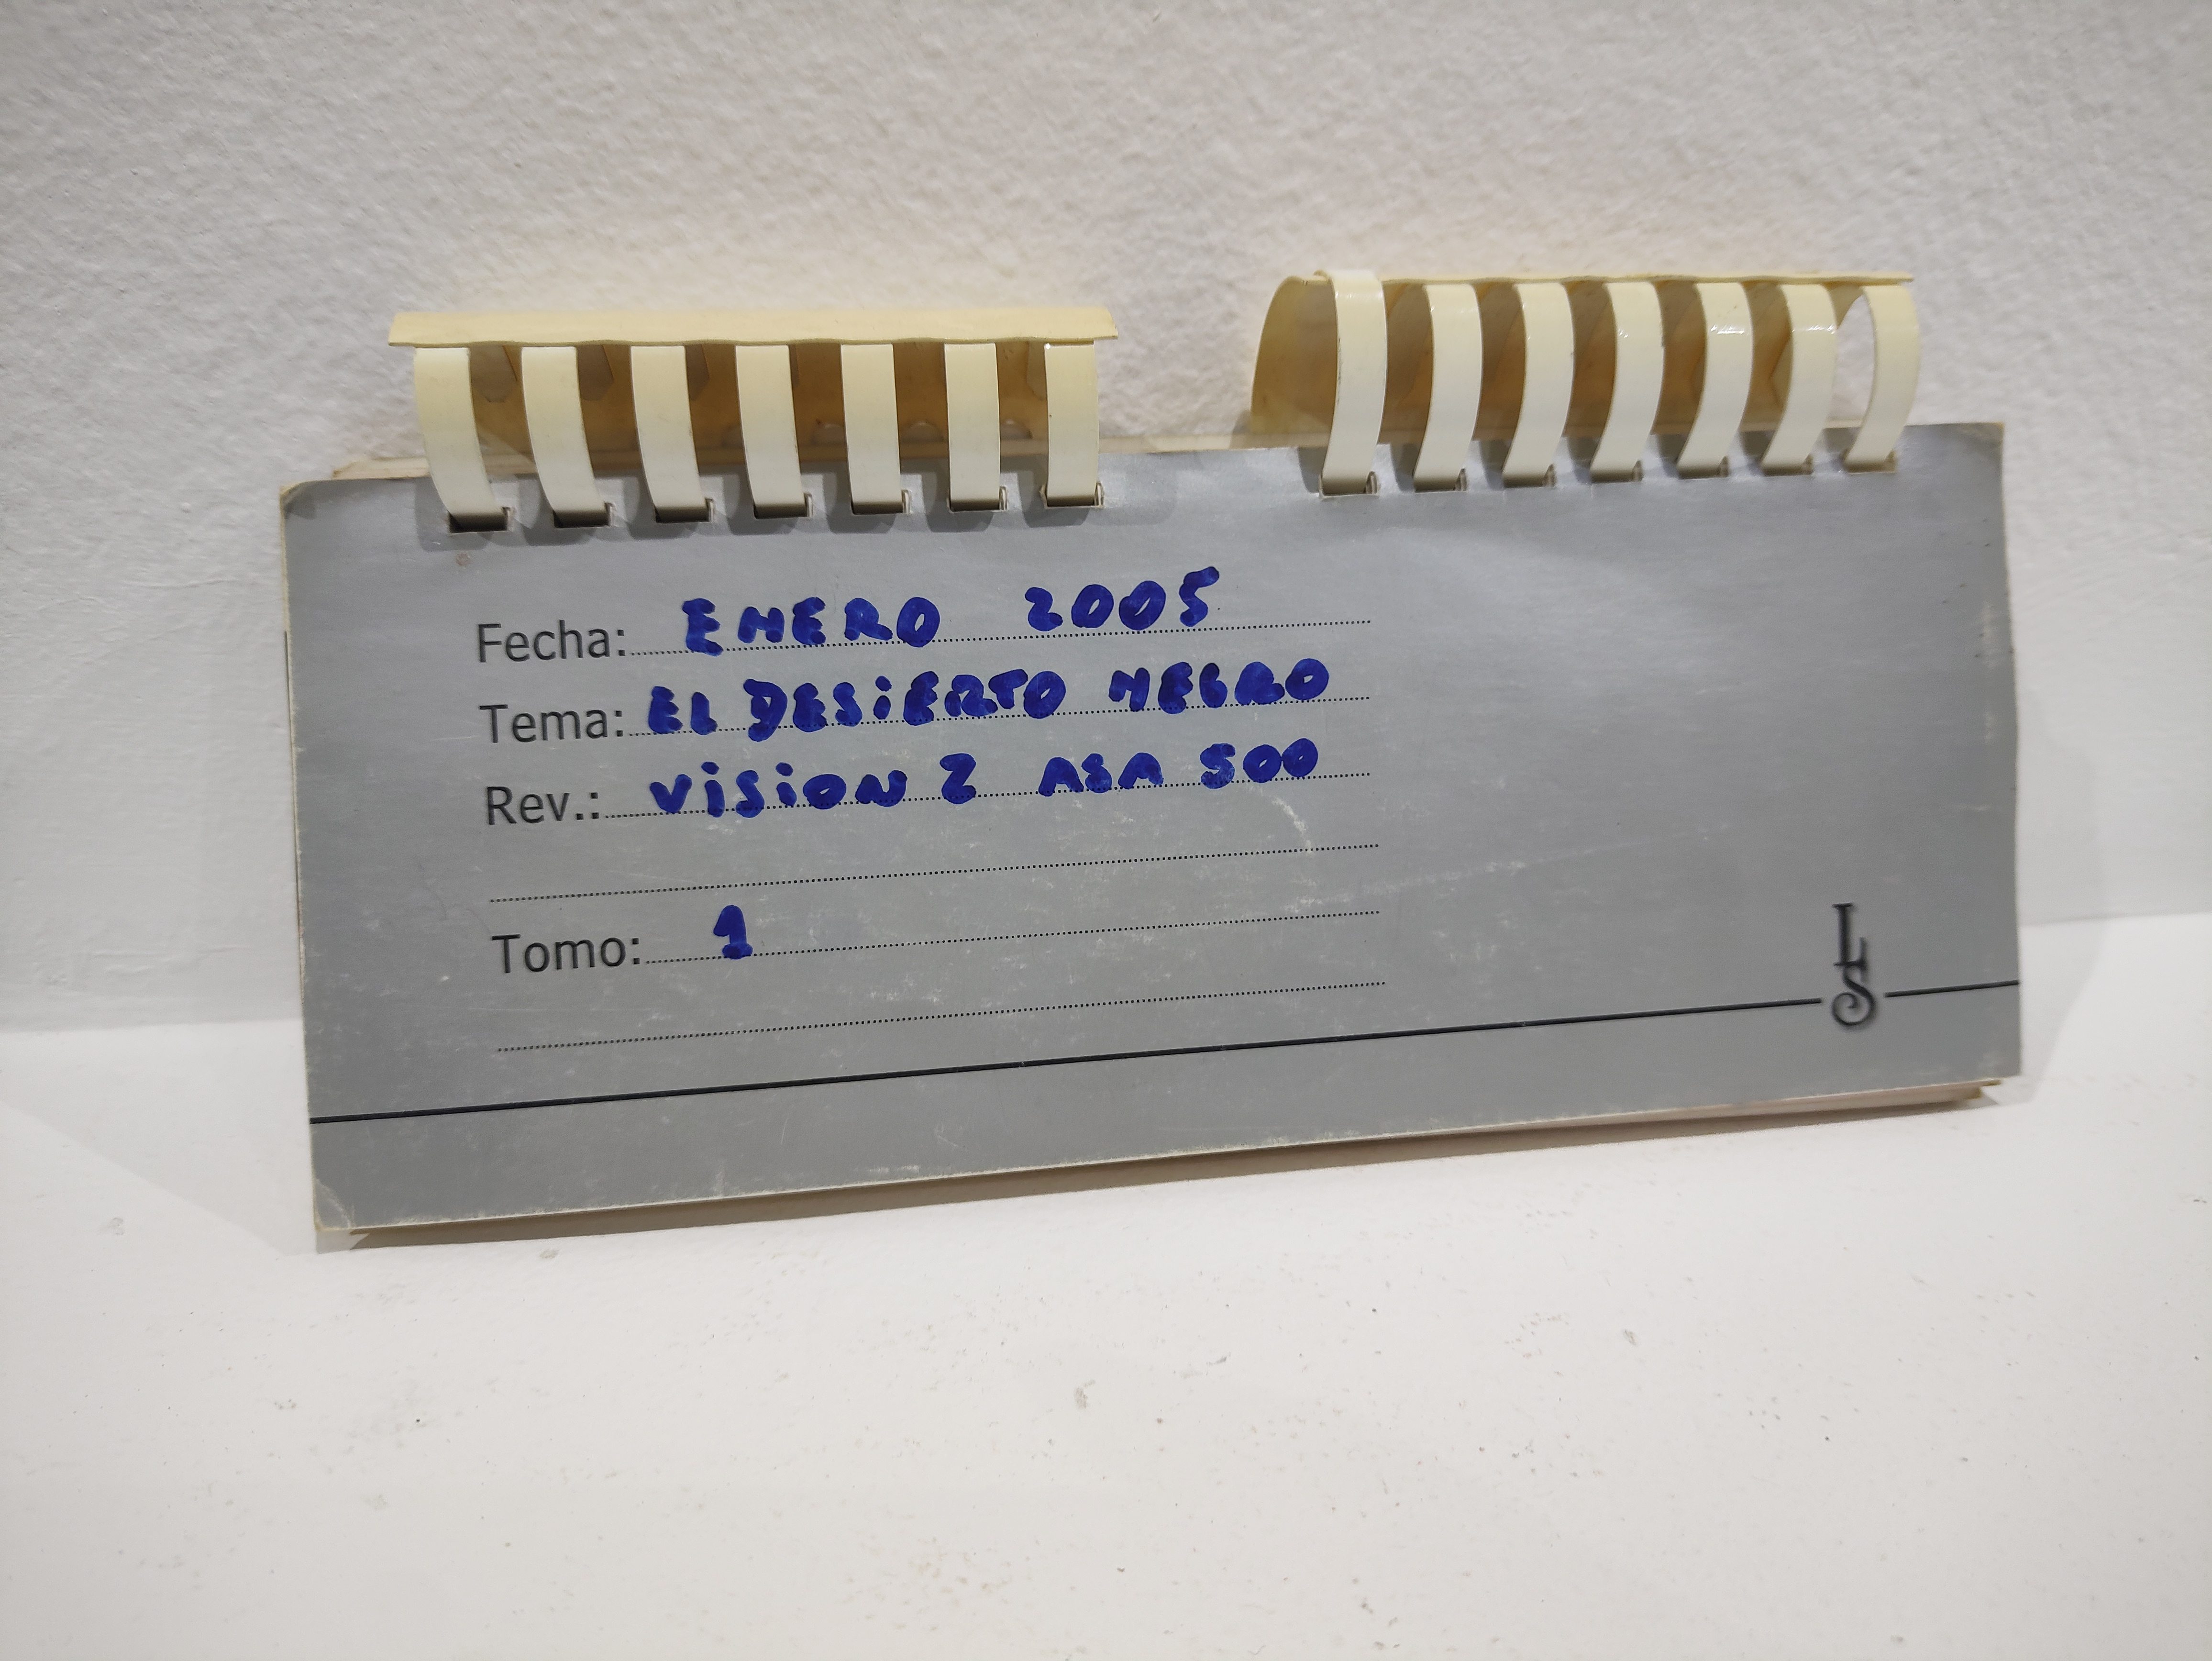 Fecha: ENERO 2005
Tema: EL DESiERTO NEGRO
Rev.: ViSiON 2 ASA 500
Tomo: 1
LS